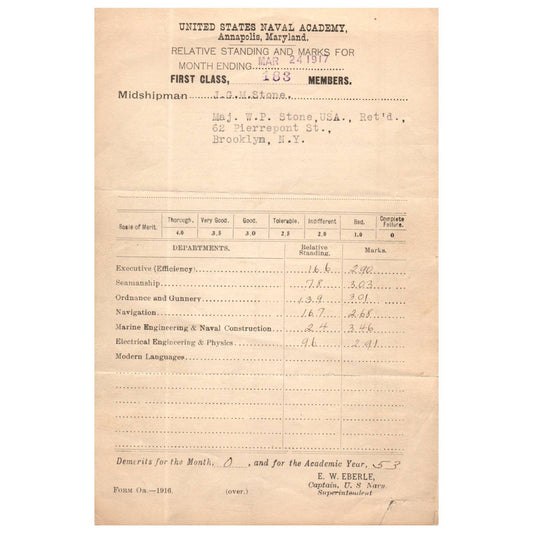 UNITED STATES NAVAL ACADEMY,
Annapolis, Maryland.
RELATIVE STANDING AND MARKS FOR
MONTH ENDING MAR 24 1917
FIRST CLASS, 183 MEMBERS.
Midshipman J.G.M.Stone.
Maj. W.P. Stone,USA., Ret'd.,
62 Pierrepont St.,
Brooklyn, N.Y.
Scale of Merit. Thorough. Very Good. Good. Tolerable. Indifferent Bad. Complete Failure.
4.0 3.5 3.0 2.5 2.0 1.0 0
DEPARTMENTS. Relative Standing. Marks.
Executive (Efficiency) 166 290
Seamanship 78 303
Ordnance and Gunnery 139 301
Navigation 167 268
Marine Engineering & Naval Construction 24 346
Electrical Engineering & Physics 96 291
Modern Languages
Demerits for the Month, 0, and for the Academic Year, 53
E. W. EBERLE,
Captain, U. S Navy.
Superintendent
FORM OA.—1916. (over.)